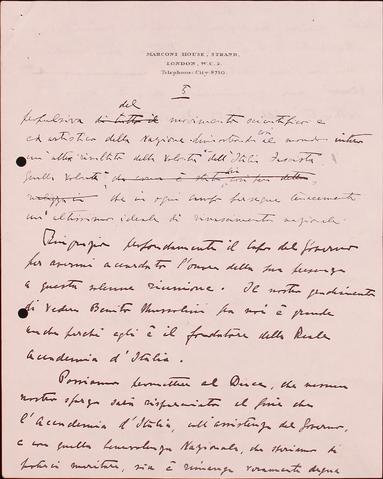 MARCONI HOUSE, STRAND,
LONDON, W.C.2.
Telephone: City 8710.
5
del
propulsiva di tutto il movimento scientifico e
ed artistico della Nazione dimostrando con al mondo intero
un'altra risultata della Volontà dell'Italia Fascista
quella Volontà, che in
che in ogni campo persegue tenacemente
un altissimo ideale di rinnovamento nazionale.
Ringrazio profondamente il Capo del Governo
per avermi accordato l'onore della sua presenza
a questa solenne riunione. Il nostro godimento
di vedere Benito Mussolini fra noi è grande
anche perchè egli è il fondatore della Reale
Accademia d'Italia.
Possiamo permettere al Duce, che nessun
nostro sforzo sarà risparmiato al fine che
l'Accademia d'Italia, coll'assistenza del Governo,
e con quella benevolenza Nazionale, che speriamo di
poterci meritare, sia e rimanga veramente degna